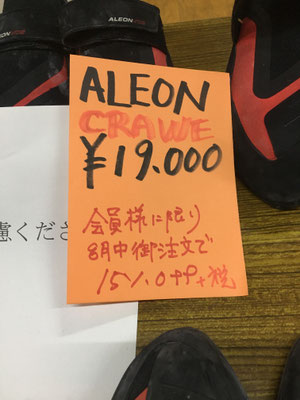 ALEON
ALEON
CRAWE
¥19.000
会員様に限り
8月中御注文で
15%off+税
慮くださ